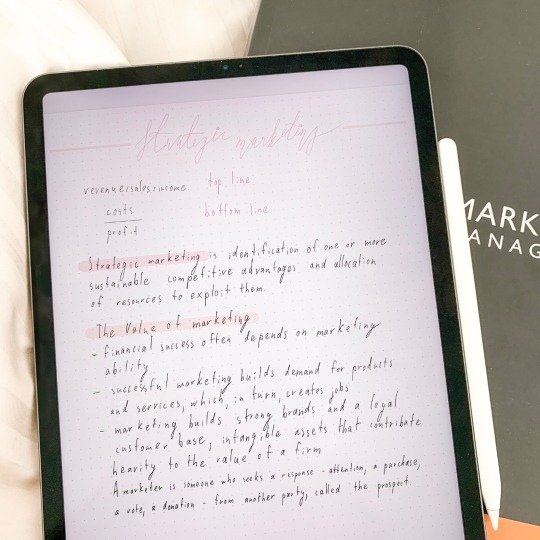 Strategic marketing
revenue/sales/income top line
costs bottom line
profit
Strategic marketing is identification of one or more
sustainable competitive advantages and allocation
of resources to exploit them.
The Value of marketing
- financial success often depends on marketing
ability
- successful marketing builds demand for products
and services, which, in turn, creates jobs
- marketing builds strong brands and a loyal
customer base, intangible assets that contribute
heavily to the value of a firm
A marketer is someone who seeks a response - attention, a purchase,
a vote, a donation - from another party, called the prospect.
MARK
ANAG